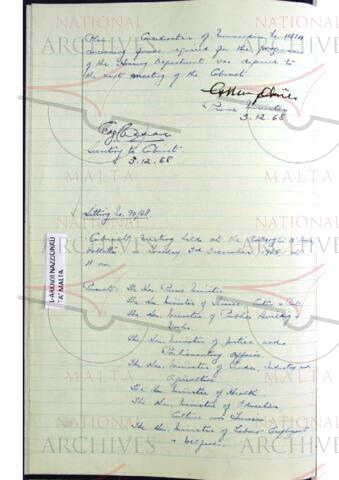 NATIONAL
ARCHIVES
MALTA
The Consideration of Memorandum No.
financing funds required for the programme
of the Housing Department was deferred to
the next meeting of the Cabinet.
Prime Minister
3.12.68
Secretary to Cabinet.
3.12.68
Sitting No. 90/68.
Cabinet Meeting held at the
Valletta on Tuesday, 3rd December 1968 at
11 am
L-ARKIVJI NAZZJONALI
TA' MALTA
Present: The Hon. Prime Minister
The Hon. Minister of Finance, Customs & Port
The Hon. Minister of Public Building &
Works.
The Hon. Minister of Justice and
Parliamentary Affairs.
The Hon. Minister of Trade, Industry and
Agriculture
The Hon. Minister of Health.
The Hon. Minister of Education
Culture and Tourism
The Hon. Minister of Labour, Employment
& Welfare.